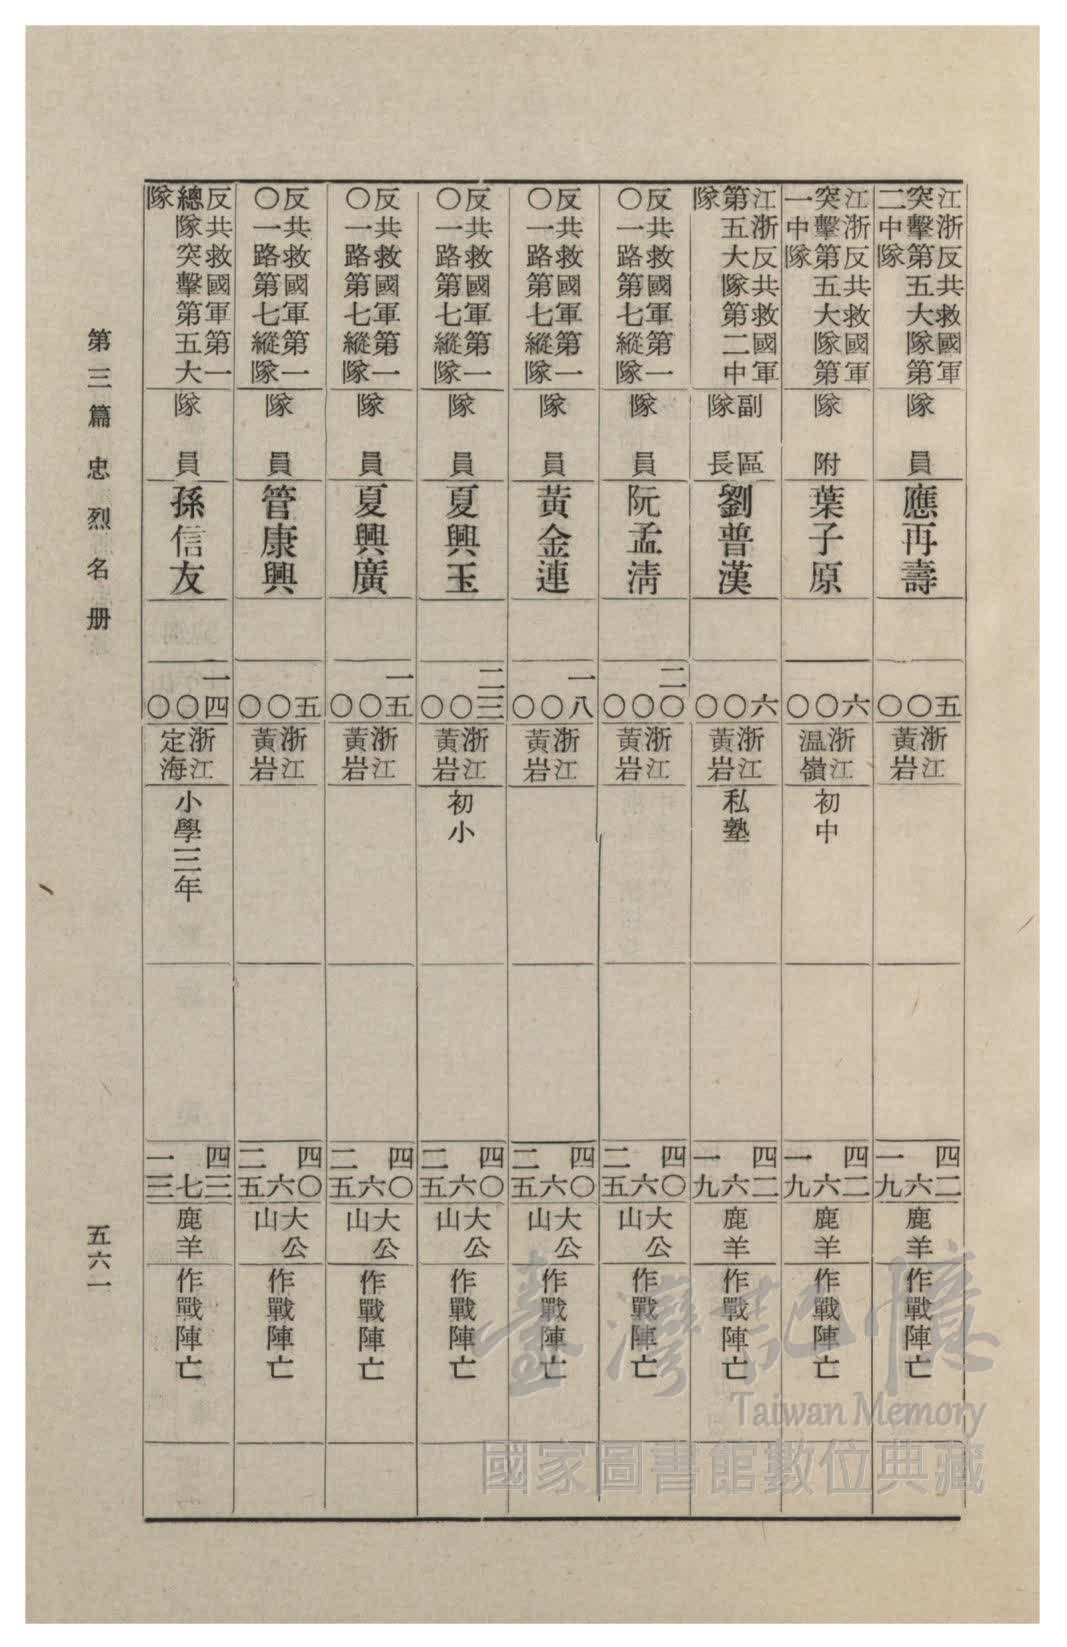 江浙反共救國軍
突擊第五大隊第
二中隊
隊員
應再壽
五〇〇
浙江
黃岩
四二六一九
鹿羊
作戰陣亡
江浙反共救國軍
突擊第五大隊第
一中隊
隊附
葉子原
六〇〇
浙江
溫嶺
初中
四二六一九
鹿羊
作戰陣亡
江浙反共救國軍
第五大隊第二中
隊
副區
隊長
劉普漢
六〇〇
浙江
黃岩
私塾
四二六一九
鹿羊
作戰陣亡
反共救國軍第一
〇一路第七縱隊
隊員
阮孟清
二〇〇〇
浙江
黃岩
四〇六二五
大公
山
作戰陣亡
反共救國軍第一
〇一路第七縱隊
隊員
黃金連
一八〇〇
浙江
黃岩
四〇六二五
大公
山
作戰陣亡
反共救國軍第一
〇一路第七縱隊
隊員
夏興玉
二三〇〇
浙江
黃岩
初小
四〇六二五
大公
山
作戰陣亡
反共救國軍第一
〇一路第七縱隊
隊員
夏興廣
一五〇〇
浙江
黃岩
四〇六二五
大公
山
作戰陣亡
反共救國軍第一
〇一路第七縱隊
隊員
管康興
五〇〇
浙江
黃岩
四〇六二五
大公
山
作戰陣亡
反共救國軍第一
總隊突擊第五大
隊
隊員
孫信友
一四〇〇
浙江
定海
小學三年
四三七一三
鹿羊
作戰陣亡
第三篇 忠烈名册
五六一
臺灣記憶
Taiwan Memory
國家圖書館數位典藏